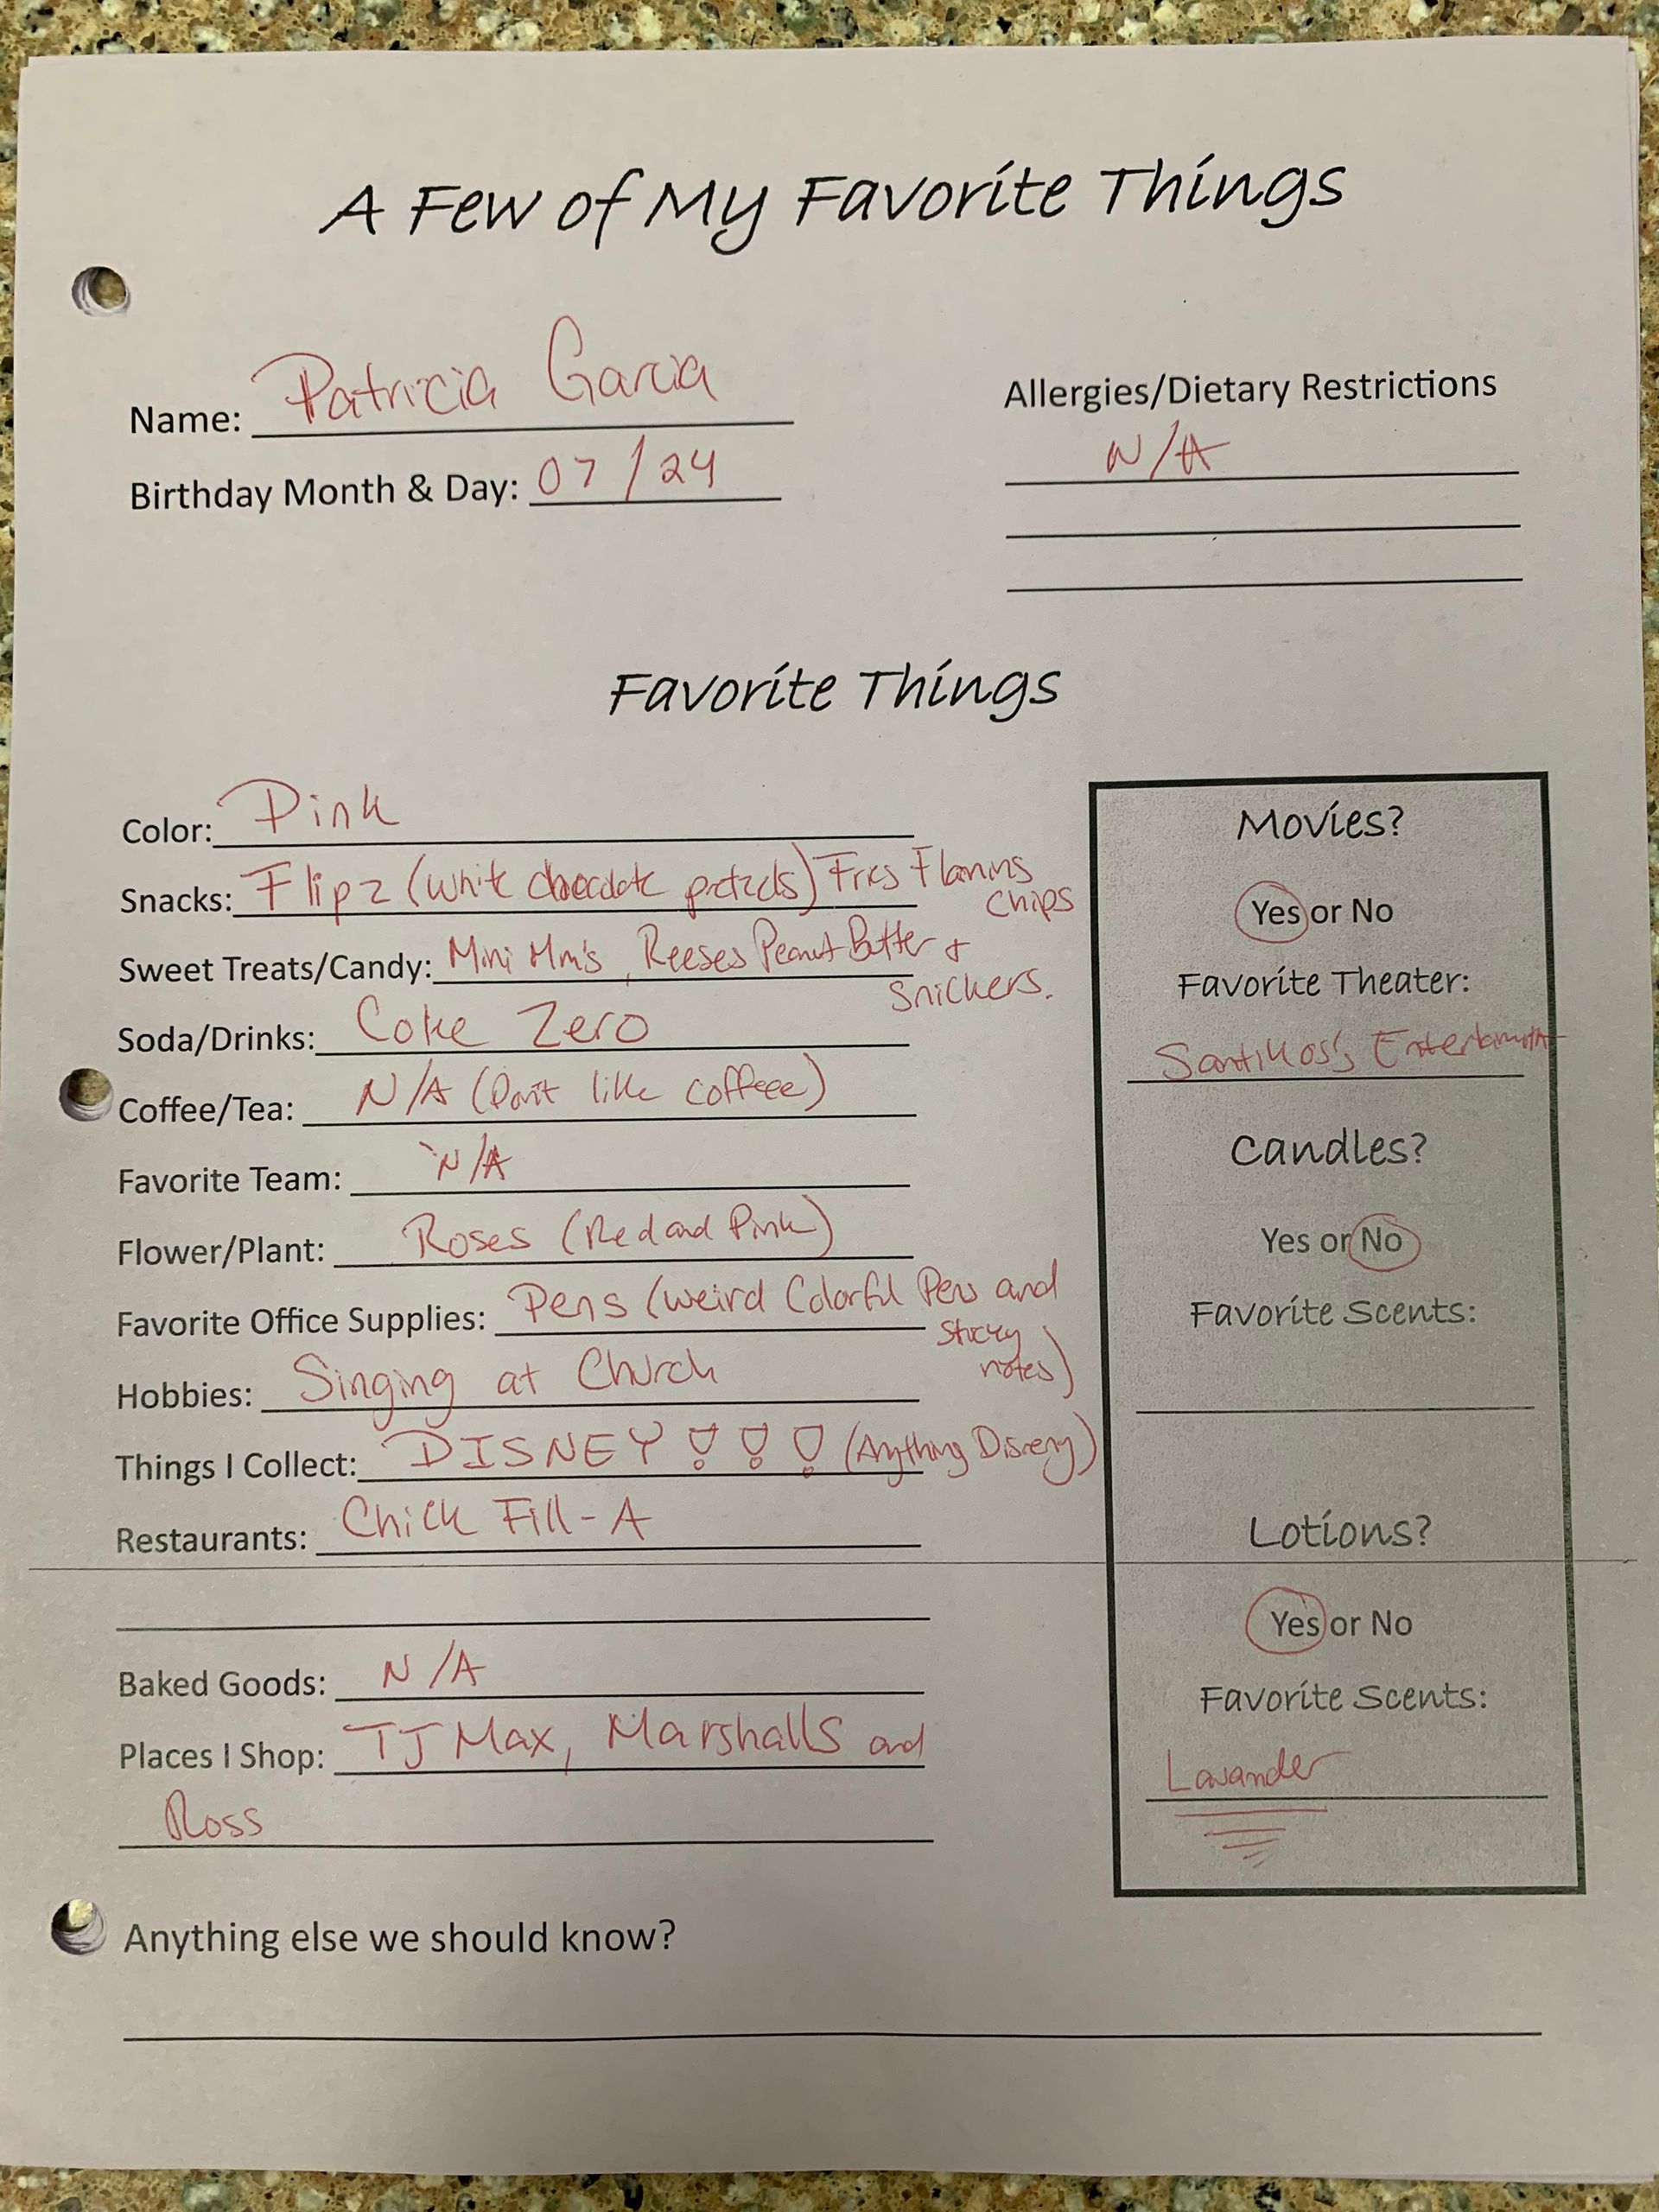 A Few of My Favorite Things
Name: Patricia Garcia
Birthday Month & Day: 07/24
Allergies/Dietary Restrictions
N/A
Favorite Things
Color: Pink
Snacks: Flipz (white chocolate pretzels) Fries
chips
Sweet Treats/Candy: Mini Mm's, Reeses Peanut Butter +
Snickers.
Soda/Drinks: Coke Zero
Coffee/Tea: N/A (Don't like coffeee)
Favorite Team: N/A
Flower/Plant: Roses (Red and Pink)
Favorite Office Supplies: Pens (weird Colorful Pens and
Sticky
notes)
Hobbies: Singing at Church
Things I Collect: DISNEY !!! (Anything Diseny)
Restaurants: Chick Fill-A
Baked Goods: N/A
Places I Shop: TJ Max, Marshalls and
Ross
Movies?
Yes or No
Favorite Theater:
Santikos's
Candles?
Yes or No
Favorite Scents:
Lotions?
Yes or No
Favorite Scents:
Lavander
Anything else we should know?